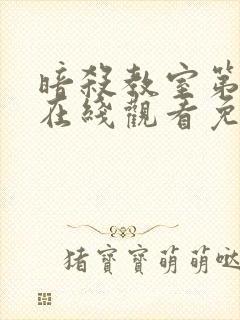 暗殺教室第
在綫觀看免
猪寶寶萌萌噠